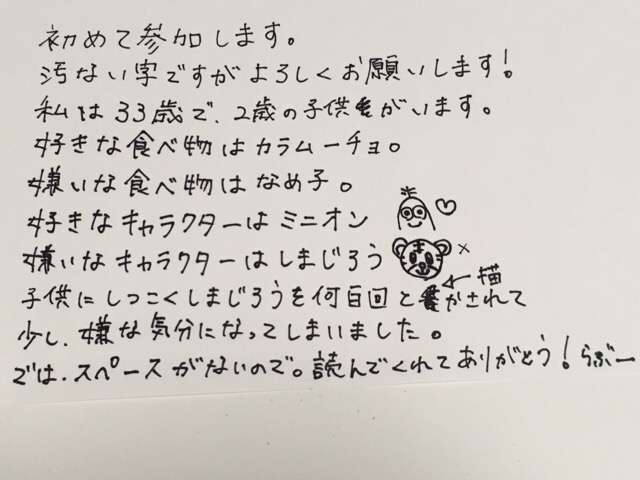 初めて参加します。
汚ない字ですがよろしくお願いします!
私は33歳で、2歳の子供がいます。
好きな食べ物はカラムーチョ。
嫌いな食べ物はなめ子。
好きなキャラクターはミニオン ♡
嫌いなキャラクターはしまじろう ×
子供にしつこくしまじろうを何百回と描かされて
少し、嫌な気分になってしまいました。
では、スペースがないので。読んでくれてありがとう!らぶー